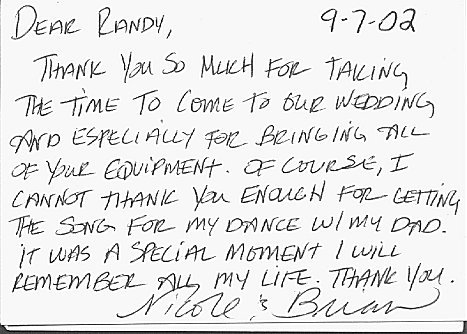 DEAR RANDY, 9-7-02
THANK YOU SO MUCH FOR TAKING
THE TIME TO COME TO OUR WEDDING
AND ESPECIALLY FOR BRINGING ALL
OF YOUR EQUIPMENT. OF COURSE, I
CANNOT THANK YOU ENOUGH FOR GETTING
THE SONG FOR MY DANCE W/ MY DAD.
IT WAS A SPECIAL MOMENT I WILL
REMEMBER ALL MY LIFE. THANK YOU.
Nicole & Brian